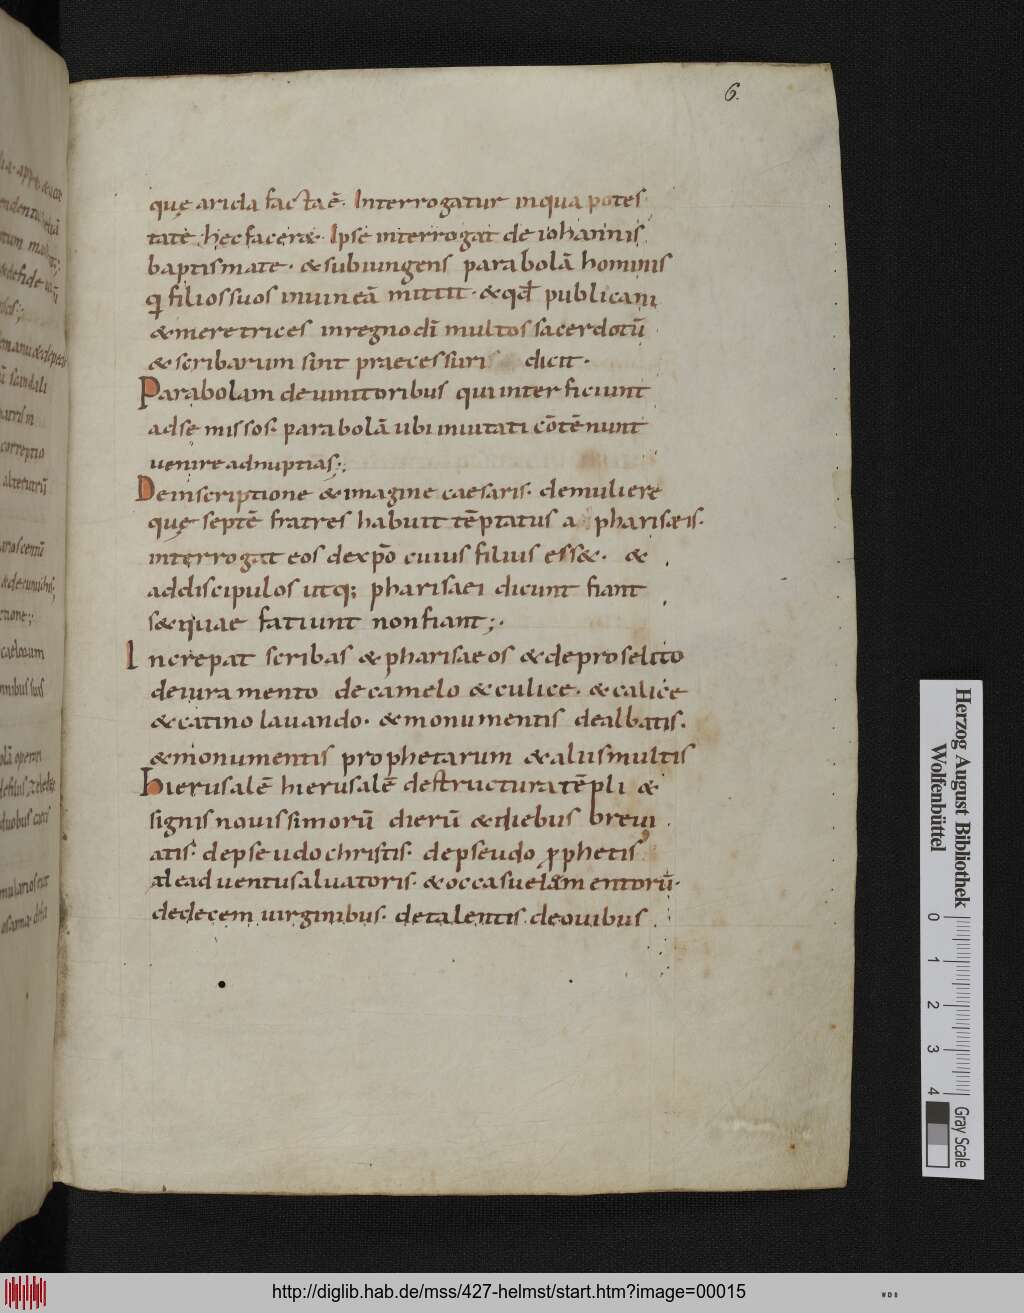 6.
quę arida facta ē· Interrogatur inqua potes
tatē hec facer&· Ipse interrogat de iohannis
baptismate· & subiungens parabolā hominis
qi filios suos inuineā mittit· & qđ publicani
& meretrices inregno dī multos sacerdotū
& scribarum sint praecessuri dicit·
Parabolam de uinitoribus qui interficiunt
adse missos· parabolā ubi inuitati cōtēnunt
uenire adnuptias·;
De inscriptione & imagine caesaris· demuliere
quę septē fratres habuit tēptatus a pharisæis·
interrogat eos dexp̄o cuius filius ess&· &
addiscipulos utq; pharisaei dicunt fiant
s&quae fatiunt nonfiant;·
Increpat scribas & pharisaeos & deproselito
deiuramento decamelo & culice· & calice
& catino lauando· & monumentis dealbatis·
& monumentis prophetarum & aliis multis
Hierusalē hierusalē destructura tēpli &
signis nouissimorū dierū & diebus breui
atis· depseudochristis· depseudo ꝓphetis
de aduentu saluatoris· & occasu elamentorū·
dedecem uirginibus· detalentis· deouibus
Herzog August Bibliothek
Wolfenbüttel
0 1 2 3 4
Gray Scale
http://diglib.hab.de/mss/427-helmst/start.htm?image=00015